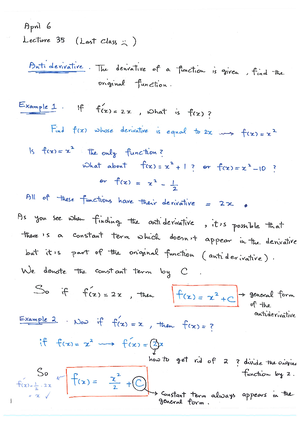 April 6
Lecture 35 (Last Class :)
Anti derivative. The derivative of a function is given, find the
original function.
Example 1. If f'(x) = 2x, what is f(x)?
Find f(x) whose derivative is equal to 2x → f(x) = x²
Is f(x) = x² the only function?
What about f(x) = x² + 1? or f(x) = x² - 10?
or f(x) = x² - 1/2
All of these functions have their derivative = 2x.
As you see when finding the antiderivative, it is possible that
there is a constant term which doesn't appear in the derivative
but it is part of the original function (antiderivative).
We denote the constant term by C.
So if f'(x) = 2x, then f(x) = x² + C → general form
of the
antiderivative
Example 2. Now if f'(x) = x, then f(x) = ?
if f(x) = x² → f'(x) = 2x
how to get rid of 2? divide the origin
function by 2.
So f(x) = x²/2 + C
→ Constant term always appears in the
general form.